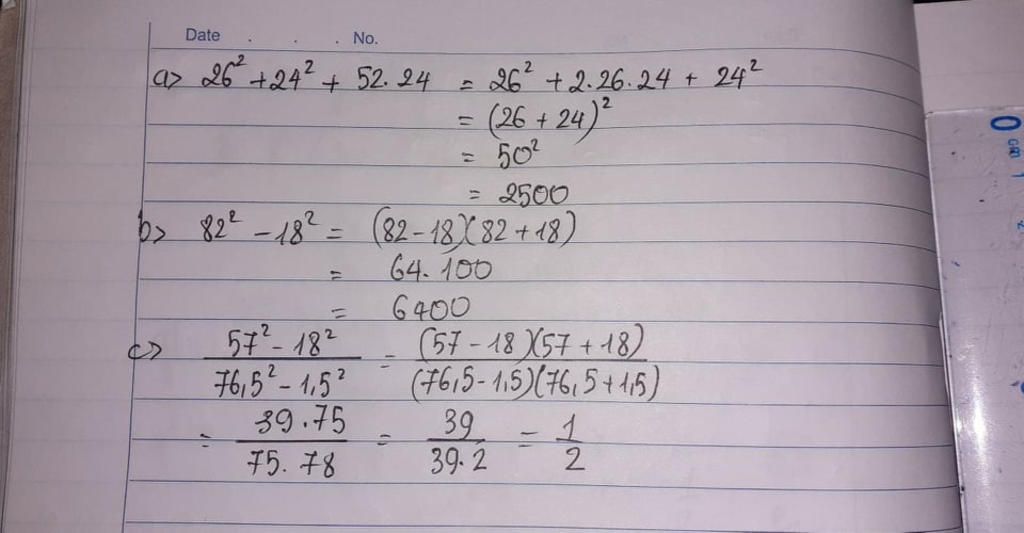 Date . . . No.
a> 26² + 24² + 52.24 = 26² + 2.26.24 + 24²
= (26 + 24)²
= 50²
= 2500
b> 82² - 18² = (82-18)(82+18)
= 64.100
= 6400
c> (57² - 18²)/(76,5² - 1,5²) = ((57 - 18)(57 + 18))/((76,5 - 1,5)(76,5 + 1,5))
= (39.75)/(75.78) = 39/(39.2) = 1/2
0